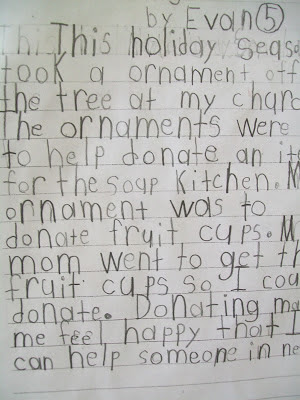 by Evan 5
This holiday seaso
took a ornament off
the tree at my churc
The ornaments were
to help donate an it
for the soup Kitchen. M
ornament was to
donate fruit cups. M
mom went to get th
fruit cups so I cou
donate. Donating m
me feel happy that I
can help someone in ne